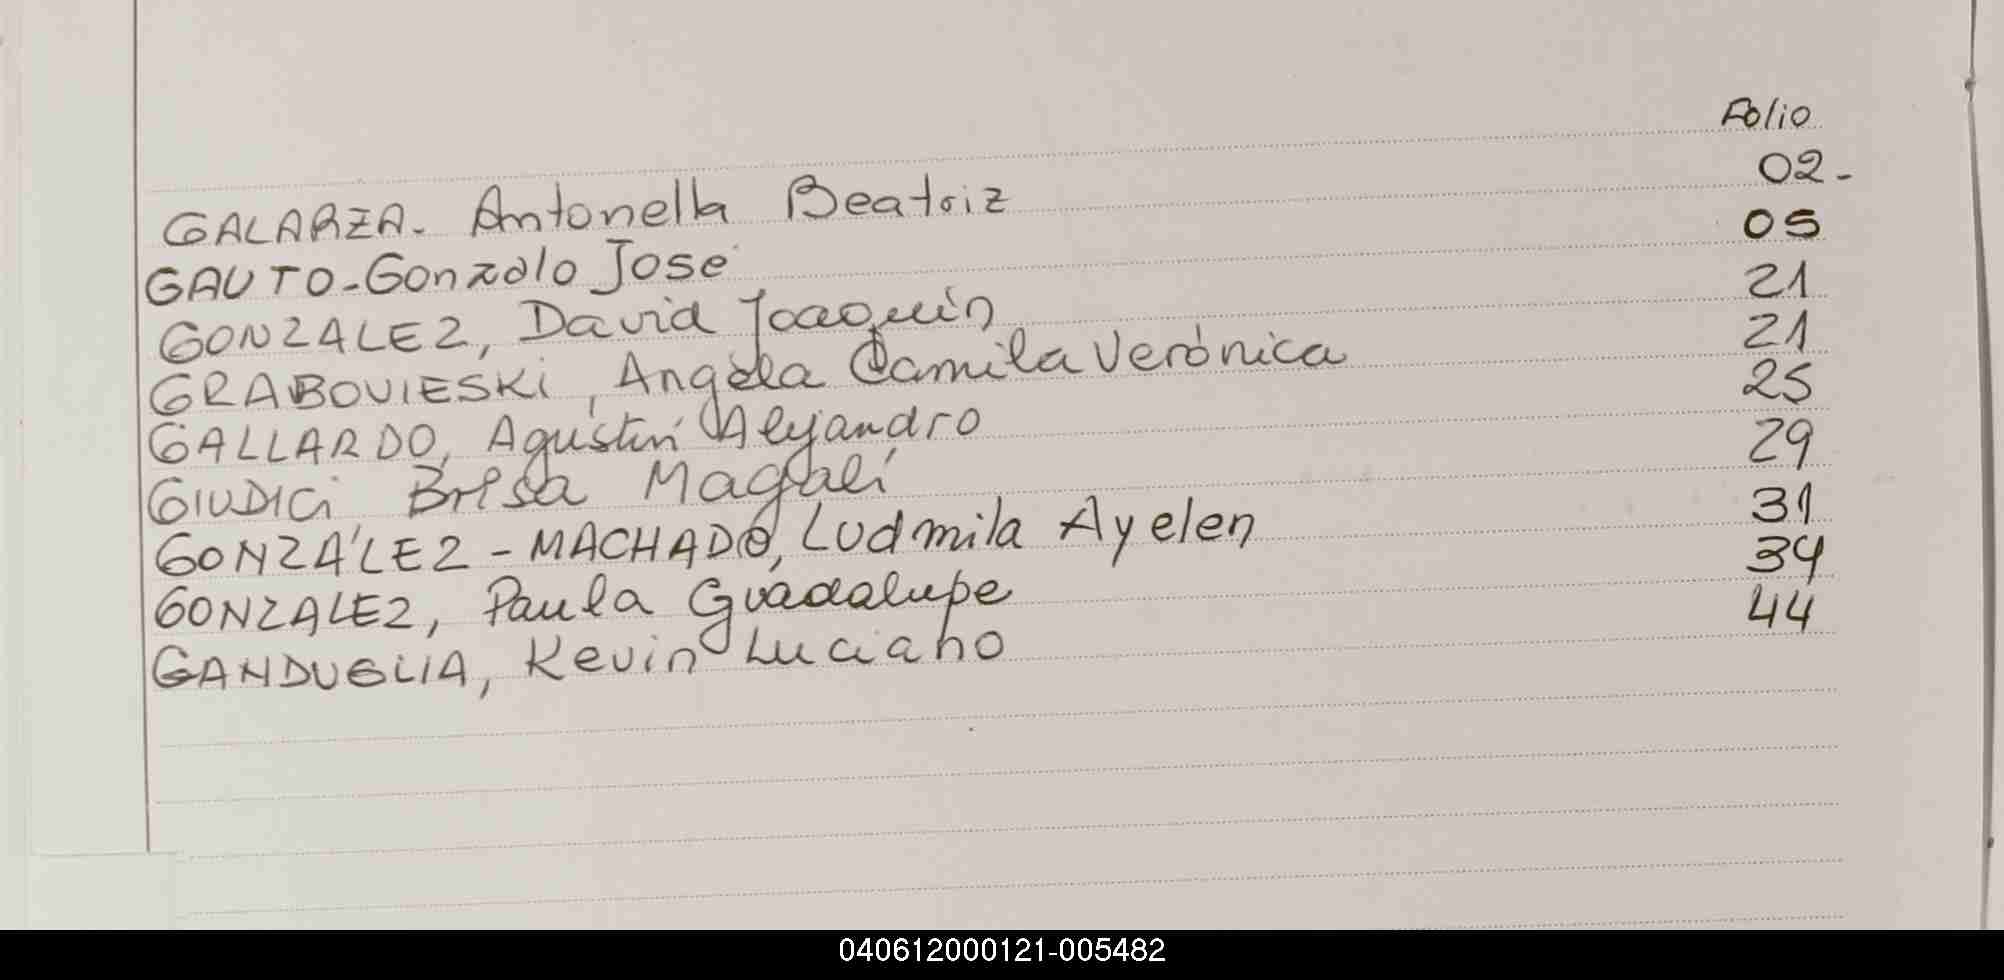 Folio
GALARZA. Antonella Beatriz 02-
GAUTO-Gonzalo José 05
GONZALEZ, David Joaquín 21
GRABOVIESKI, Angela Camila Verónica 21
GALLARDO, Agustín Alejandro 25
GIUDICI Brisa Magalí 29
GONZÁLEZ - MACHADO, Ludmila Ayelen 31
GONZALEZ, Paula Guadalupe 34
GANDUGLIA, Kevin Luciano 44
040612000121-005482